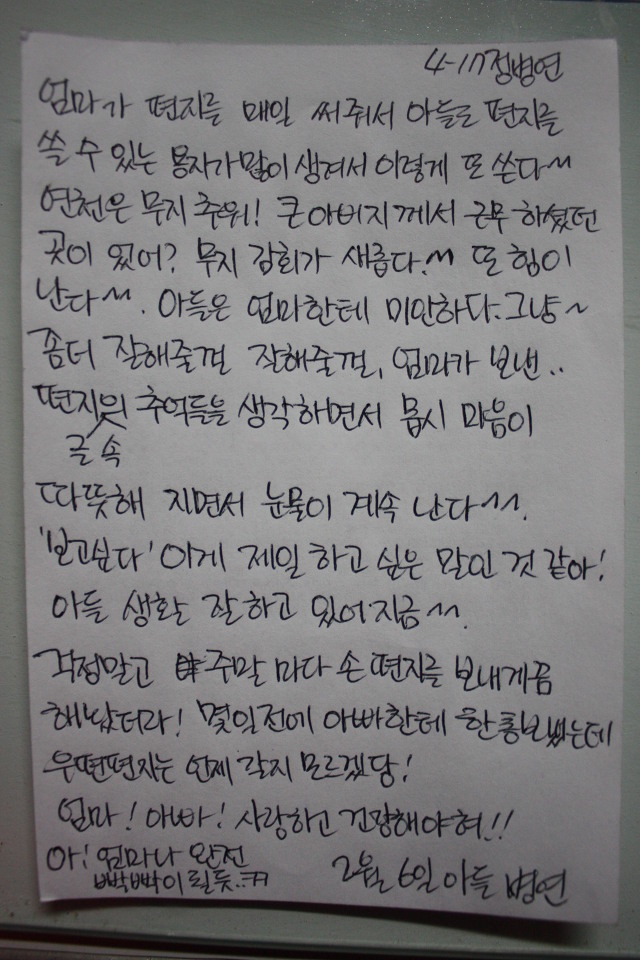 4-17 정병연
엄마가 편지를 매일 써줘서 아들도 편지를
쓸 수 있는 용자가많이 생겨서 이렇게 또 쓴다~^^
연천은 무지 추워! 큰아버지께서 근무 하셨던
곳이 있어? 무지 감회가 새롭다.^^ 또 힘이
난다^^. 아들은 엄마한테 미안하다. 그냥~
좀더 잘해줄껄 잘해줄껄, 엄마가 보낸..
편지의 추억들을 생각하면서 몹시 마음이
글 속
따뜻해 지면서 눈물이 계속 난다^^.
'보고싶다' 이게 제일 하고 싶은 말인 것 같아!
아들 생활 잘하고 있어 지금^^.
걱정말고 주말 마다 손 편지를 보내게끔
해놨더라! 몇일전에 아빠한테 한통보냈는데
우편편지는 언제 갈지 모르겠당!
엄마! 아빠! 사랑하고 건강해야혀!!
아! 엄마나 완전
빡빡이 릴듯..ㅋㅋ
2월 6일 아들 병연